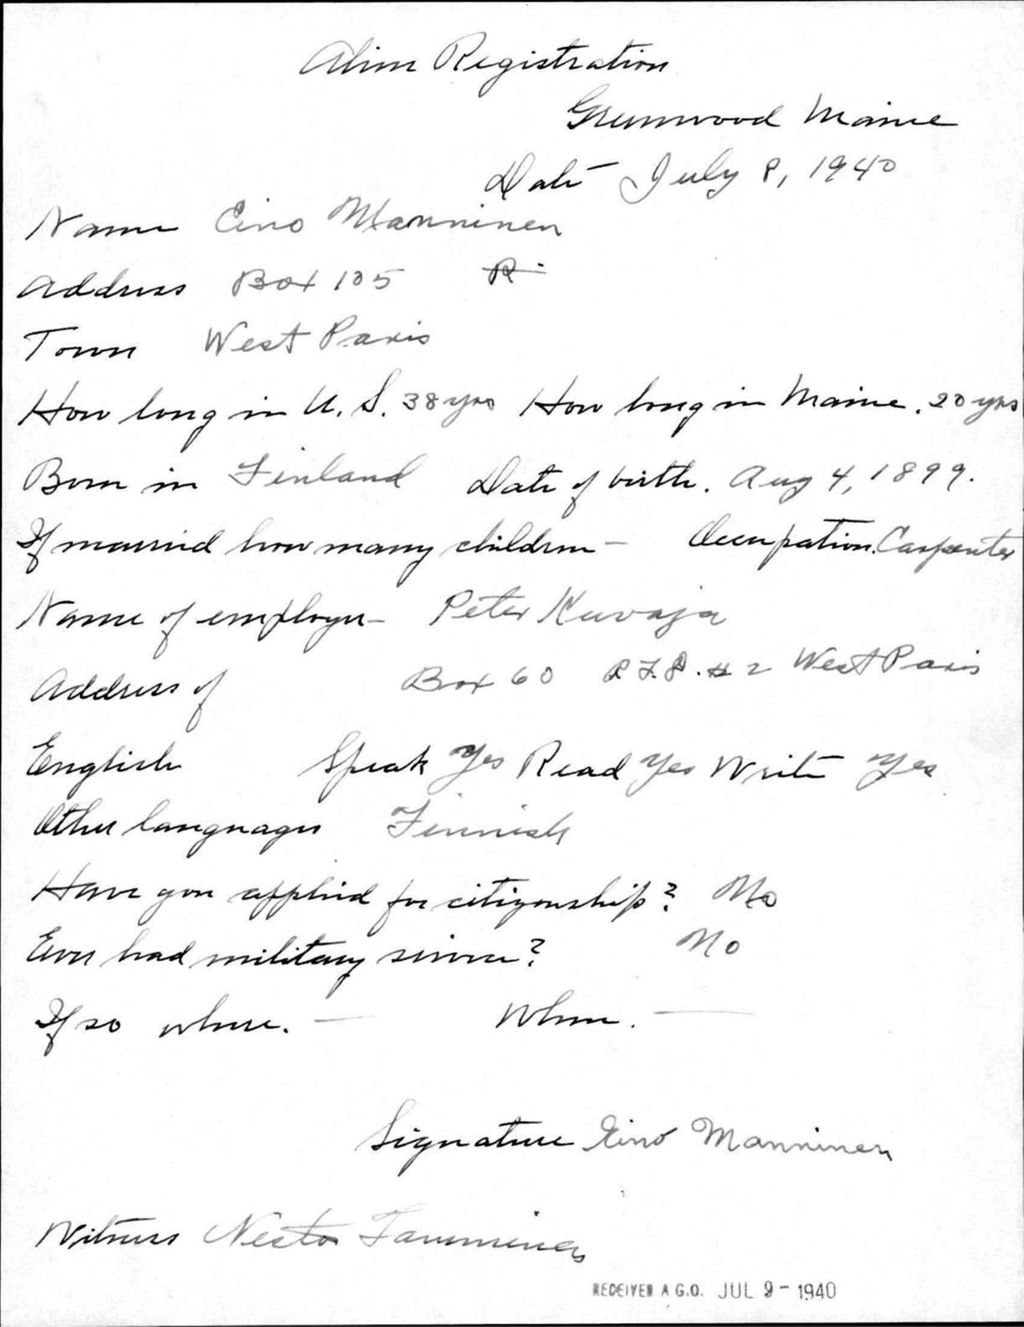 Alien Registration
Greenwood Maine
Date July 8, 1940
Name Eino Manninen
Address Box 105 R
Town West Paris
How long in U. S. 38 yrs How long in Maine. 20 yrs
Born in Finland Date of birth. Aug 4, 1899.
If married how many children — Occupation. Carpenter
Name of employer — Peter Kuvaja
Address of Box 60 R.F.D. #2 West Paris
English Speak Yes Read Yes Write Yes
Other languages Finnish
Have you applied for citizenship? No
Ever had military service? No
If so where. — When. —
Signature Eino Manninen
Witness Nestor Tamminen
RECEIVED A.G.O. JUL 9 - 1940